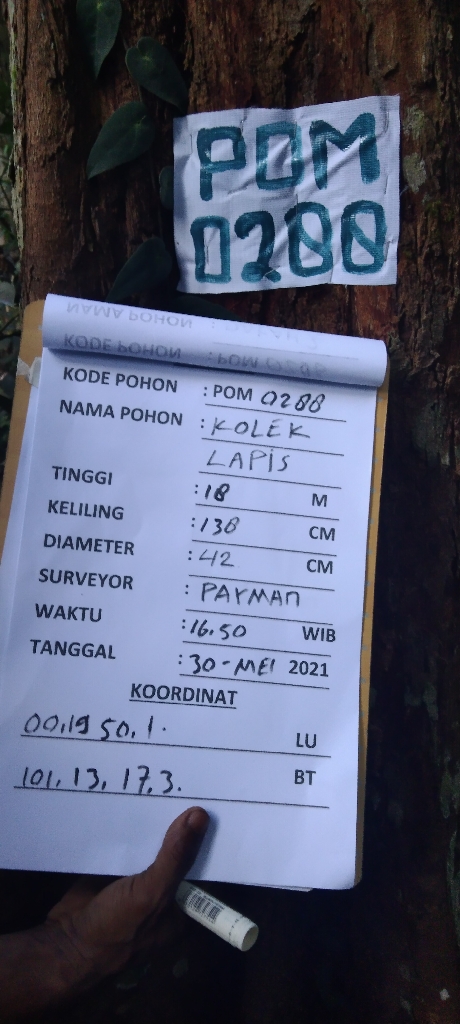 POM
0288
KODE POHON : POM 0288
NAMA POHON : KOLEK
LAPIS
TINGGI : 18 M
KELILING : 138 CM
DIAMETER : 42 CM
SURVEYOR : PAYMAN
WAKTU : 16.50 WIB
TANGGAL : 30-MEI 2021
KOORDINAT
00,19 50,1. LU
101, 13, 17,3. BT